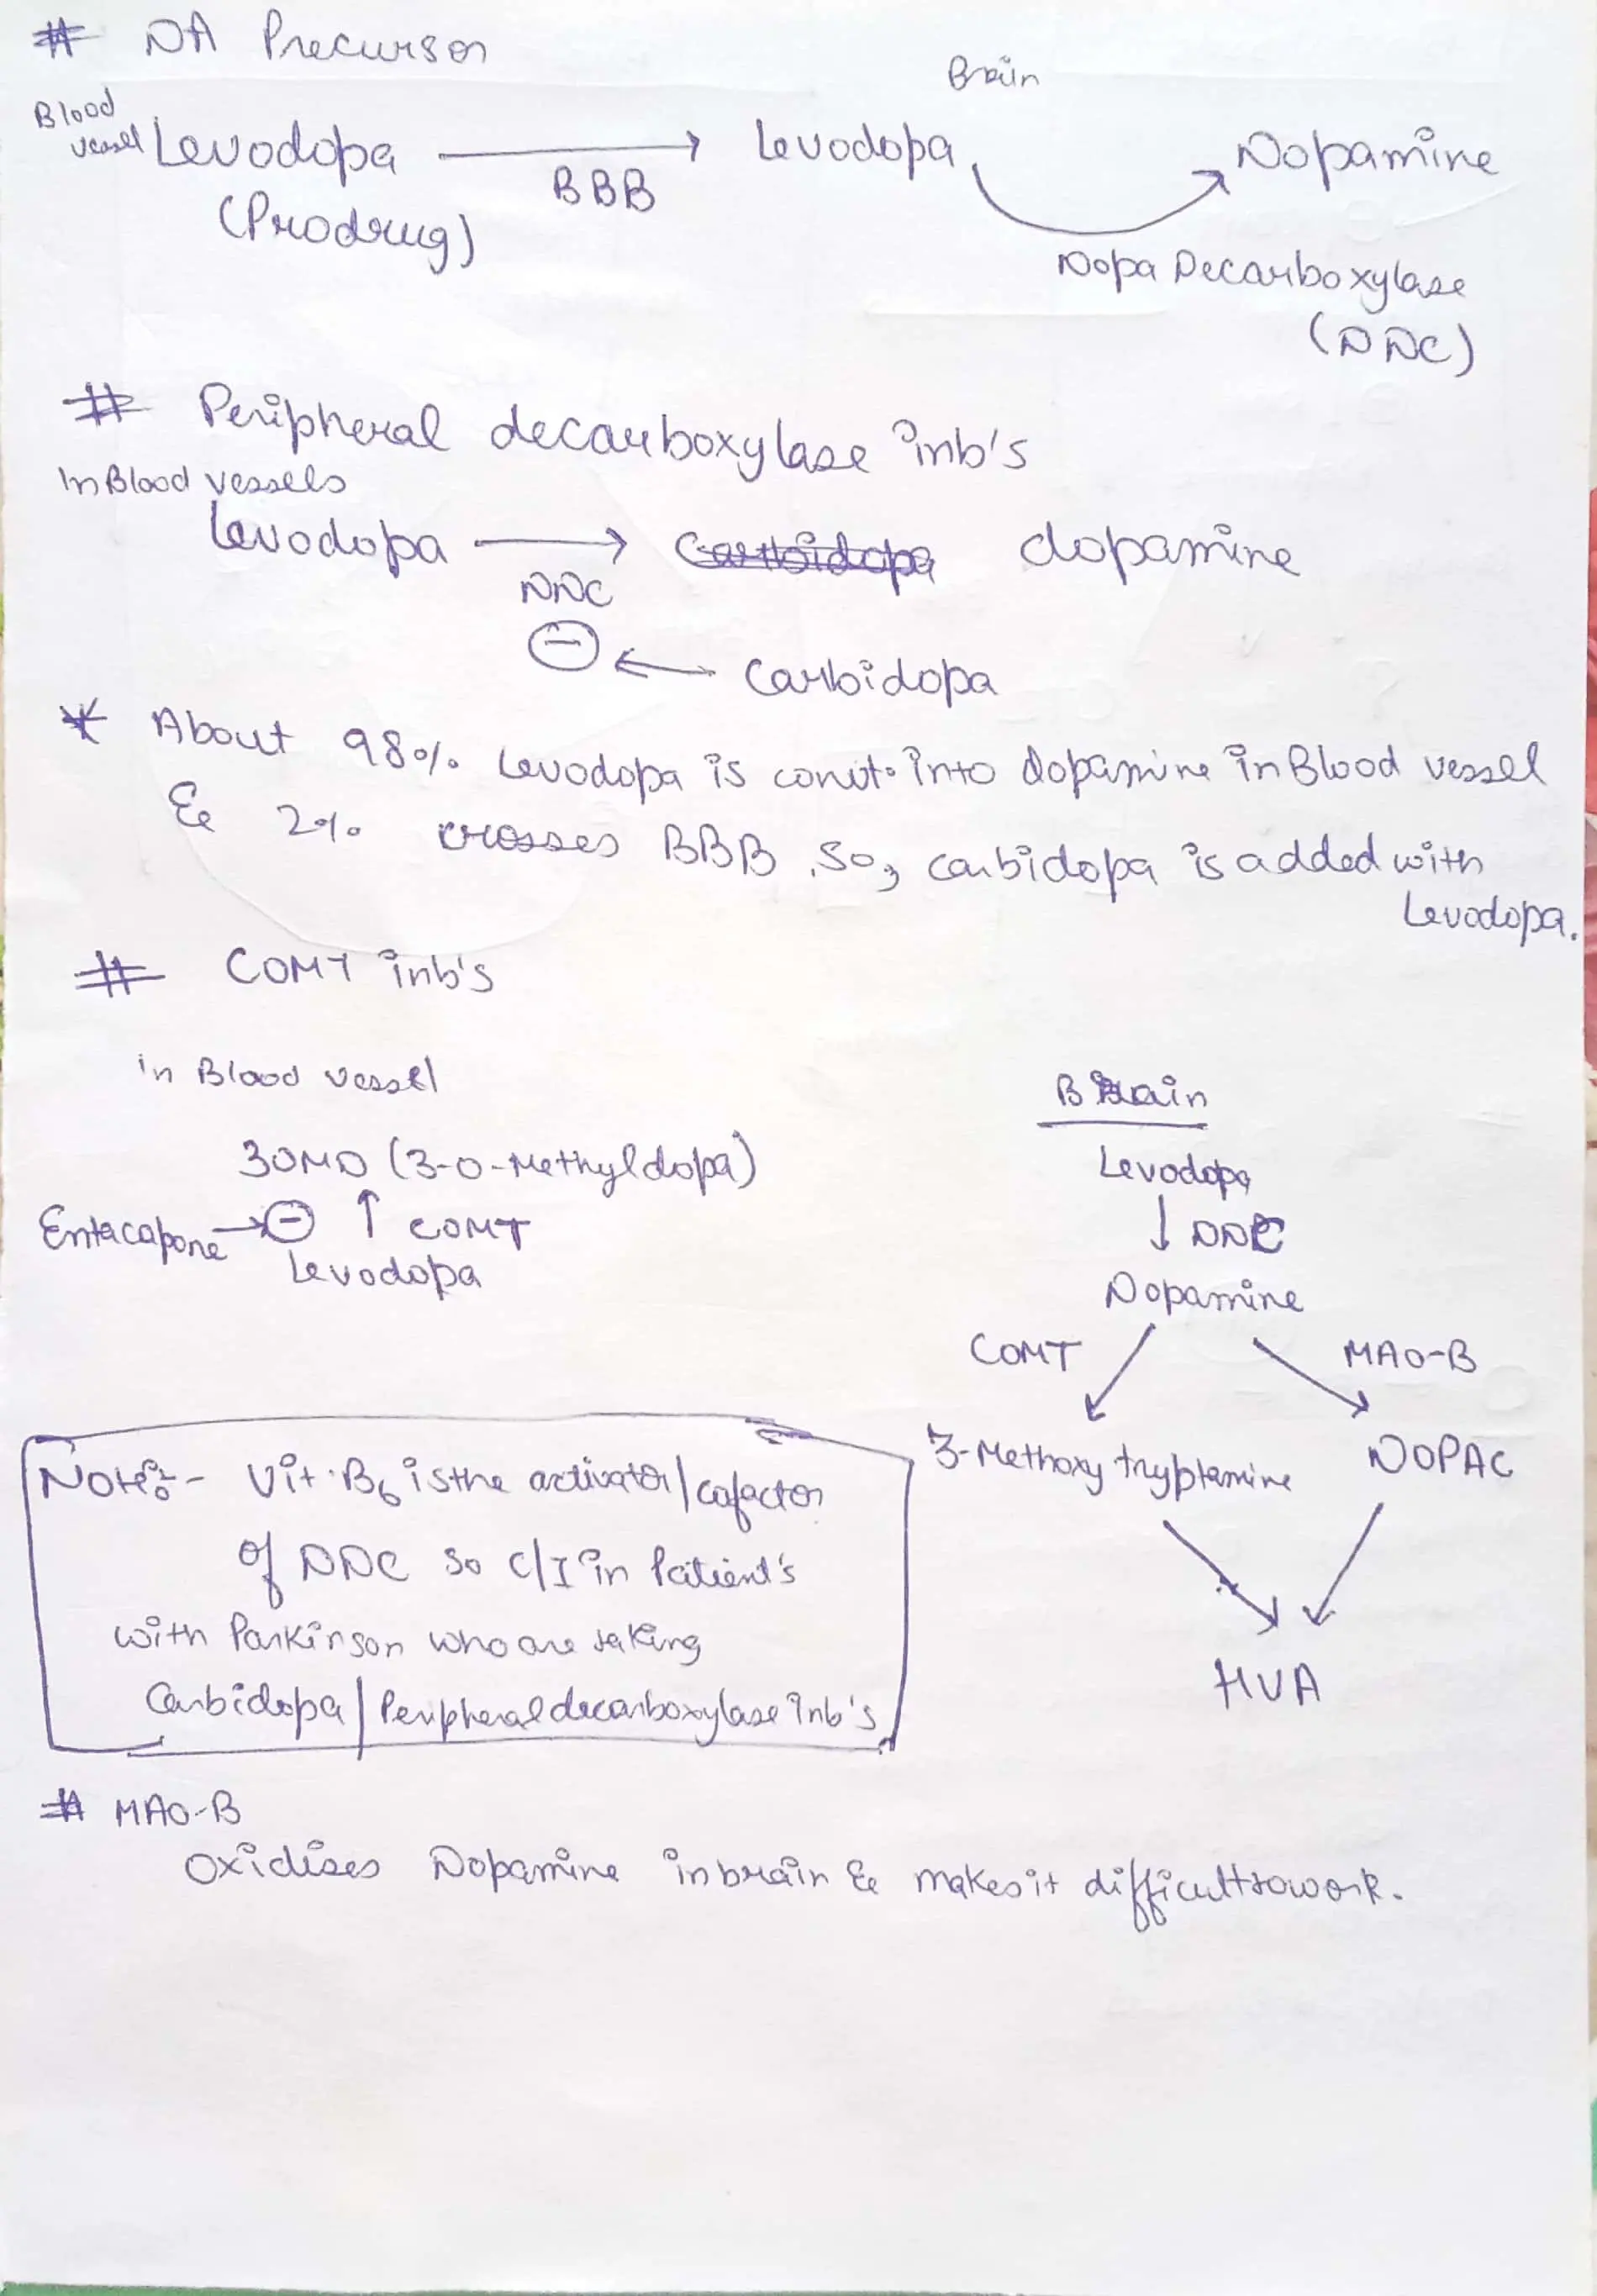 # DA Precursor
Brain
Blood vessel Levodopa → Levodopa Dopamine
BBB
(Prodrug)
Dopa Decarboxylase
(DDC)
# Peripheral decarboxylase inb's
In Blood vessels
Levodopa → Carbidopa dopamine
DDC
⊖ ← Carbidopa
* About 98% Levodopa is convt. into dopamine in Blood vessel
& 2% crosses BBB. So, carbidopa is added with
Levodopa.
# COMT inb's
in Blood vessel
Brain
3OMD (3-O-Methyldopa)
Levodopa
Entacapone → ⊖ ↑ COMT
↓ DDC
Levodopa
Dopamine
COMT MAO-B
3-Methoxy tryptamine DOPAC
HVA
Note:- Vit.B6 is the activator/cofactor
of DDC so C/I in Patient's
with Parkinson who are taking
Carbidopa/Peripheral decarboxylase inb's
# MAO-B
Oxidises Dopamine in brain & makes it difficult to work.